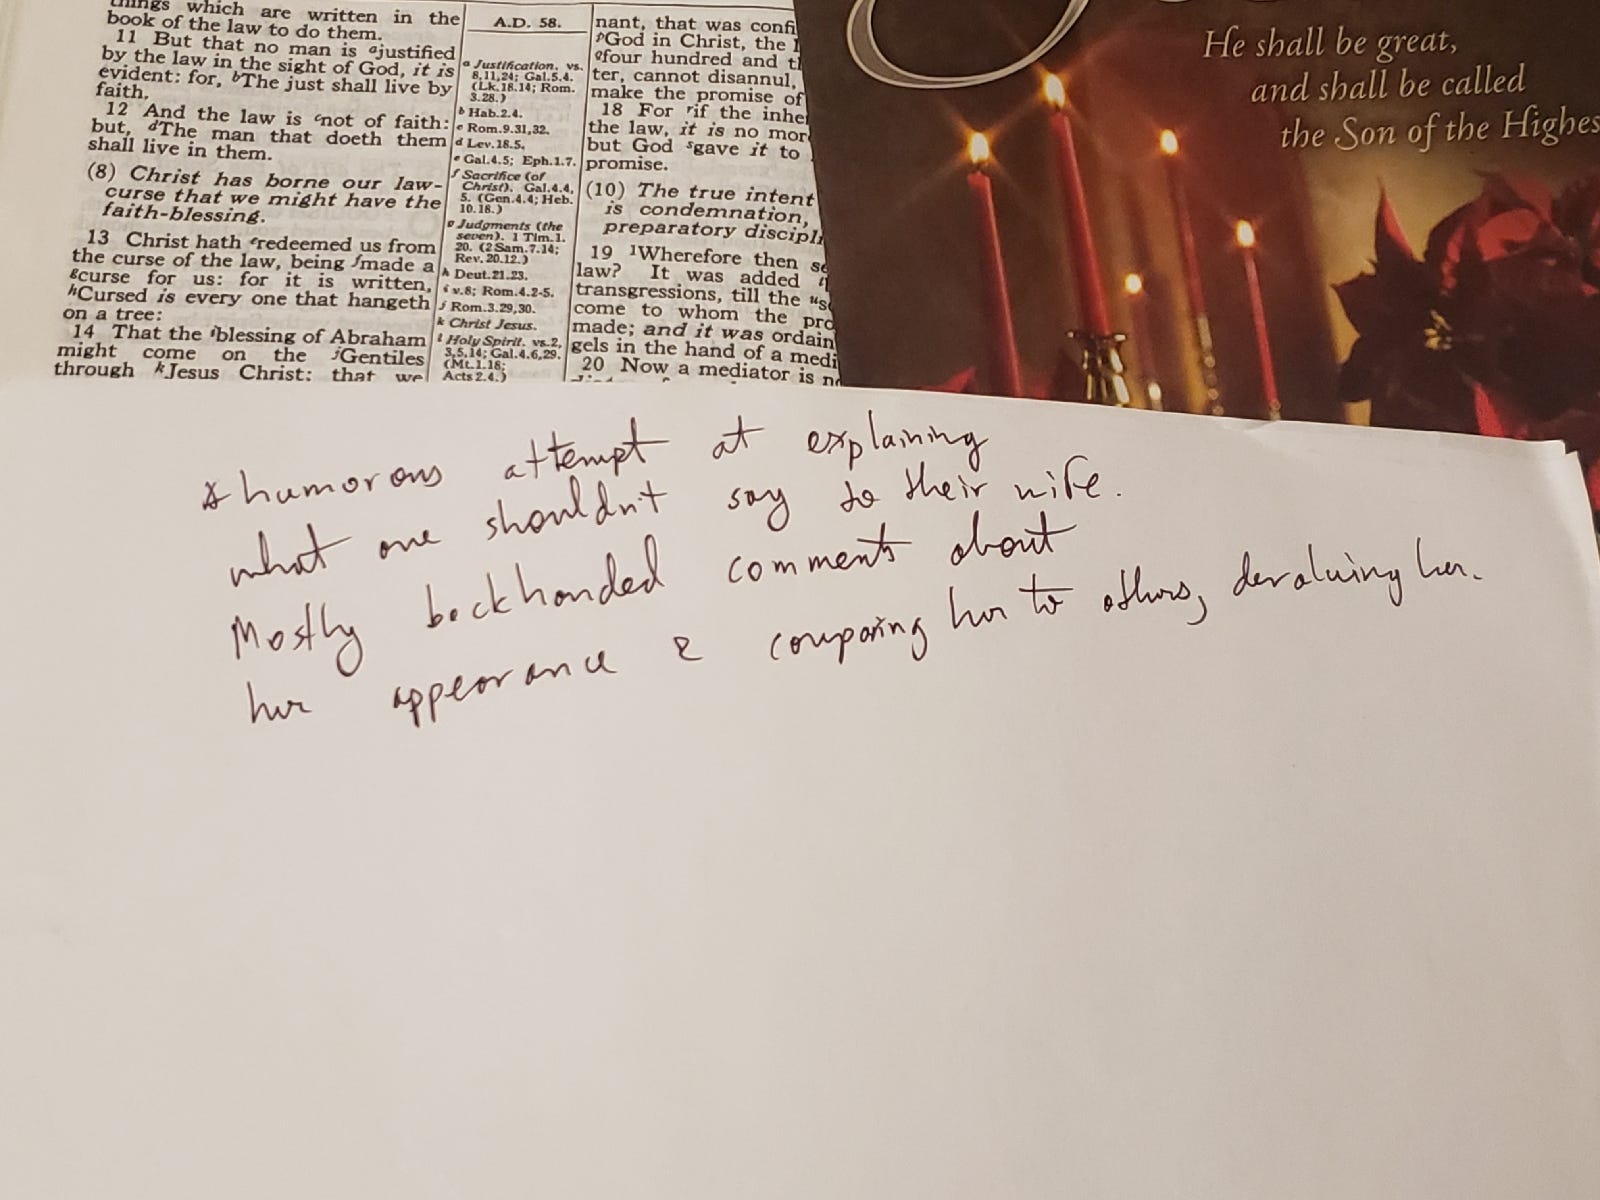 things which are written in the
book of the law to do them.
11 But that no man is ajustified
by the law in the sight of God, it is
evident: for, bThe just shall live by
faith.
12 And the law is cnot of faith:
but, dThe man that doeth them
shall live in them.
(8) Christ has borne our law-
curse that we might have the
faith-blessing.
13 Christ hath eredeemed us from
the curse of the law, being fmade a
gcurse for us: for it is written,
hCursed is every one that hangeth
on a tree:
14 That the iblessing of Abraham
might come on the jGentiles
through kJesus Christ; that we
A.D. 58.
a Justification. vs.
8,11,24; Gal.5.4.
(Lk.18.14; Rom.
3.28.)
b Hab.2.4.
c Rom.9.31,32.
d Lev.18.5.
e Gal.4.5; Eph.1.7.
f Sacrifice (of
Christ). Gal.4.4,
5. (Gen.4.4; Heb.
10.18.)
g Judgments (the
seven). 1 Tim.1.
20. (2 Sam.7.14;
Rev.20.12.)
h Deut.21.23.
i v.8; Rom.4.2-5.
j Rom.3.29,30.
k Christ Jesus.
l Holy Spirit. vs.2,
3,5,14; Gal.4.6,29.
(Mt.1.18;
Acts 2.4.)
nant, that was confi
pGod in Christ, the
qfour hundred and t
ter, cannot disannul,
make the promise of
18 For rif the inhe
the law, it is no mor
but God sgave it to
promise.
(10) The true intent
is condemnation,
preparatory discipl
19 1Wherefore then se
law? It was added t
transgressions, till the us
come to whom the pro
made; and it was ordain
gels in the hand of a medi
20 Now a mediator is no
He shall be great,
and shall be called
the Son of the Highes
* humorous attempt at explaining
what one shouldn't say to their wife.
Mostly backhanded comments about
her appearance & comparing her to others, devaluing her.